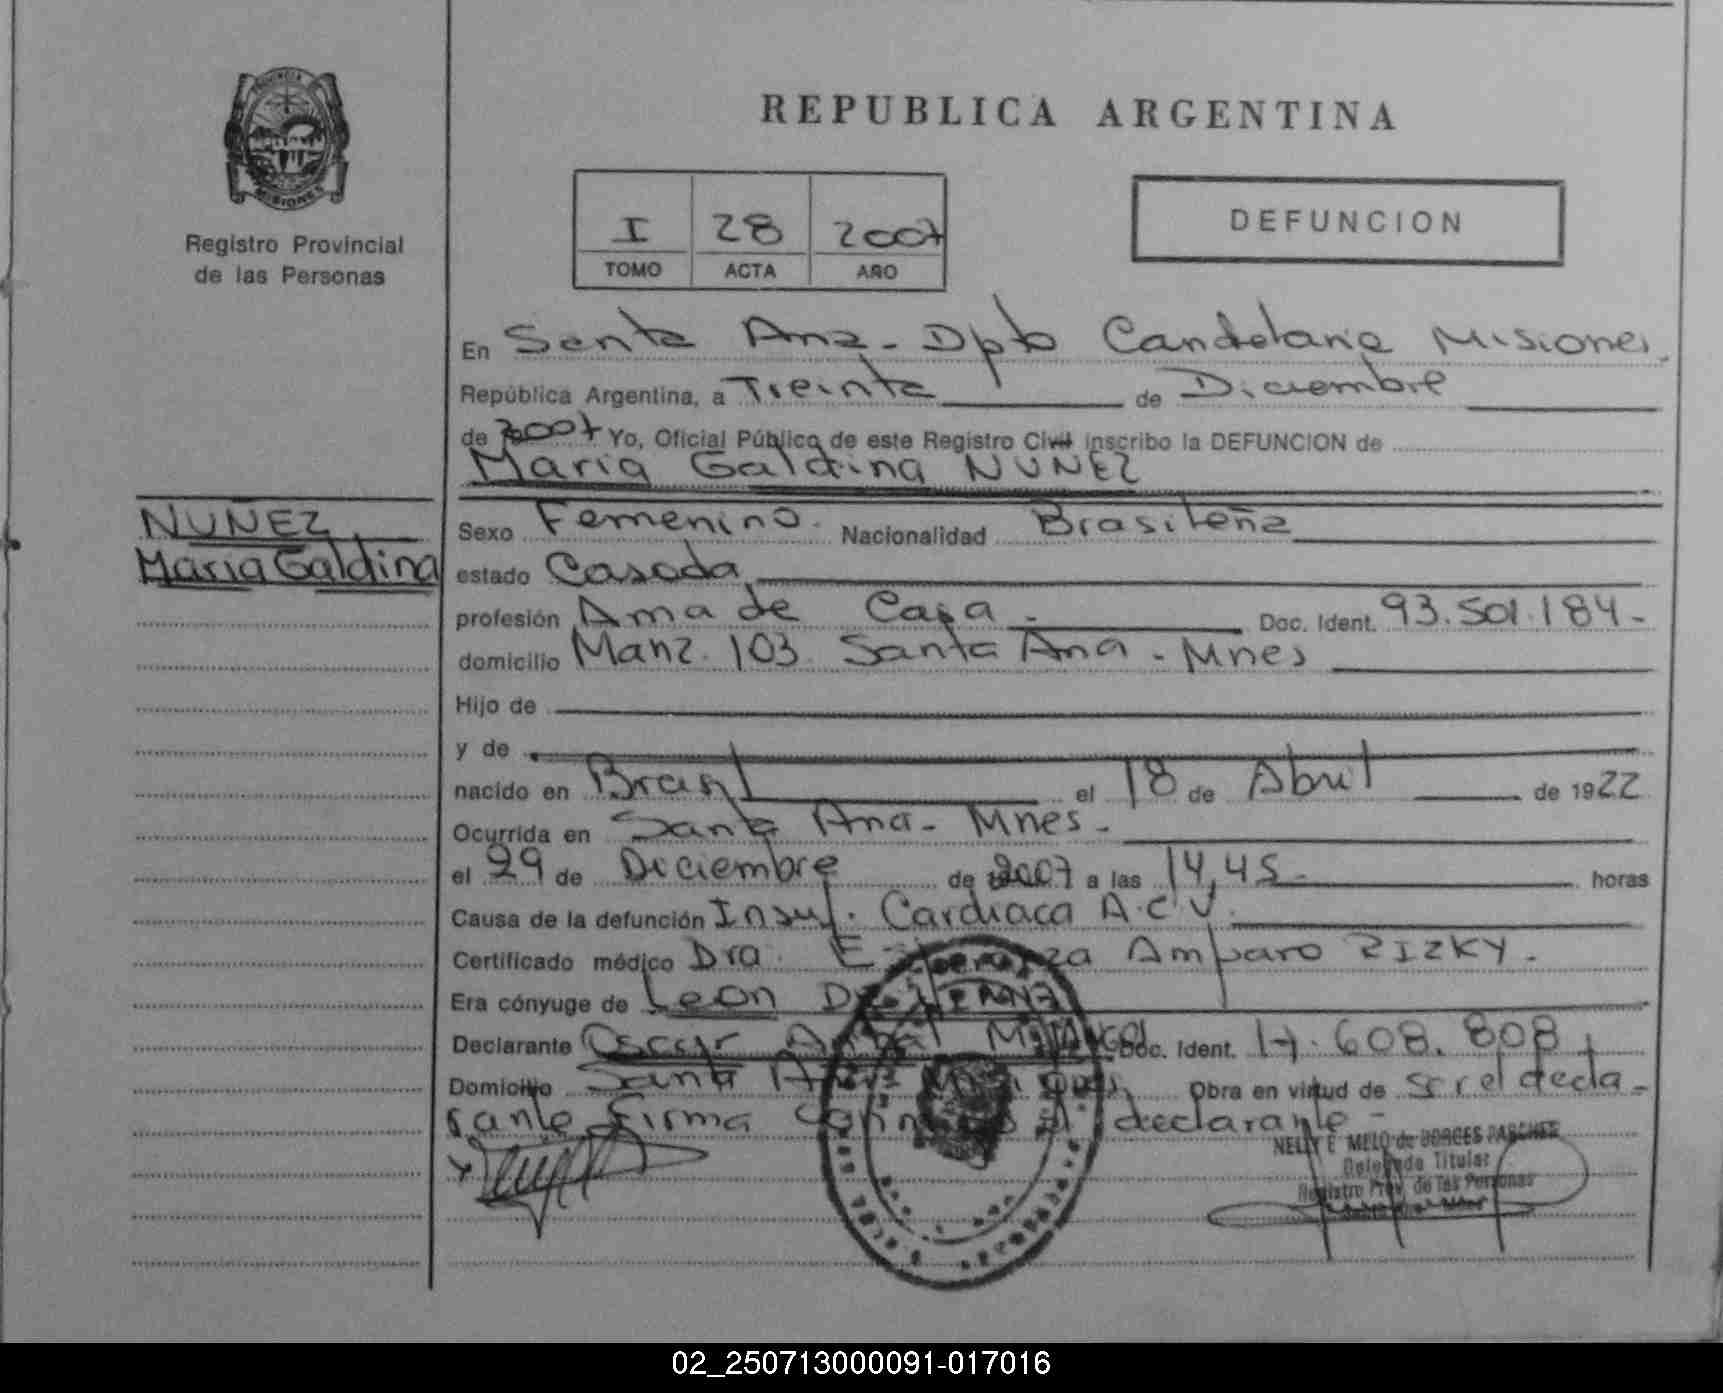 REPUBLICA ARGENTINA
PROVINCIA
MISIONES
Registro Provincial
de las Personas
I 28 2007
TOMO ACTA AÑO
DEFUNCION
En Santa Ana - Dpto Candelaria Misiones.
República Argentina, a Treinta de Diciembre
de 2007 Yo, Oficial Público de este Registro Civil inscribo la DEFUNCION de
Maria Galdina NUNEZ
NUNEZ
Maria Galdina
Sexo Femenino. Nacionalidad Brasileña
estado Casada
profesión Ama de Casa - Doc. Ident. 93.501.184-
domicilio Manz. 103. Santa Ana - Mnes
Hijo de
y de
nacido en Brasil el 18 de Abril de 1922
Ocurrida en Santa Ana - Mnes -
el 29 de Diciembre de 2007 a las 14,45 horas
Causa de la defunción Insuf. Cardiaca A.C.V.
Certificado médico Dra. Amparo RIZKY.
Era cónyuge de Leon
Declarante Oscar Doc. Ident. 17.608.808
Domicilio Santa Ana Obra en virtud de ser el decla-
rante firma el declarante -
NELLY E. MELO de BORGES
Delegada Titular
Registro Prov. de las Personas
02_250713000091-017016